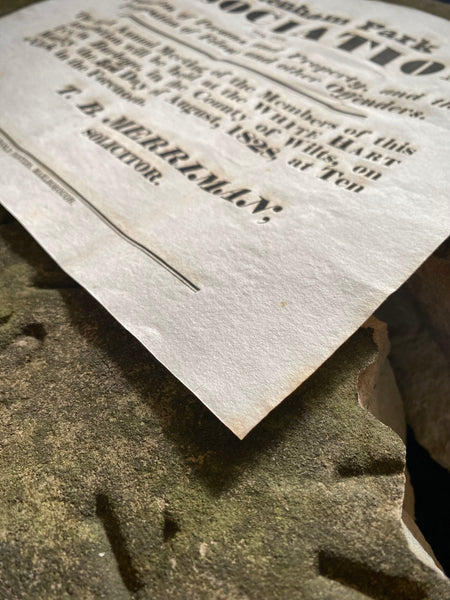 tenham Park
SOCIATIO
of Prome and Property, and th
of Felons and other Offenders.
Annual Meeting of the Members of this
will be held at the WHITE HART
in the County of Wilts, on
Day of August, 1828, at Ten
in the Forenoon.
T. B. MERRIMAN,
SOLICITOR.
MARLBOROUGH.